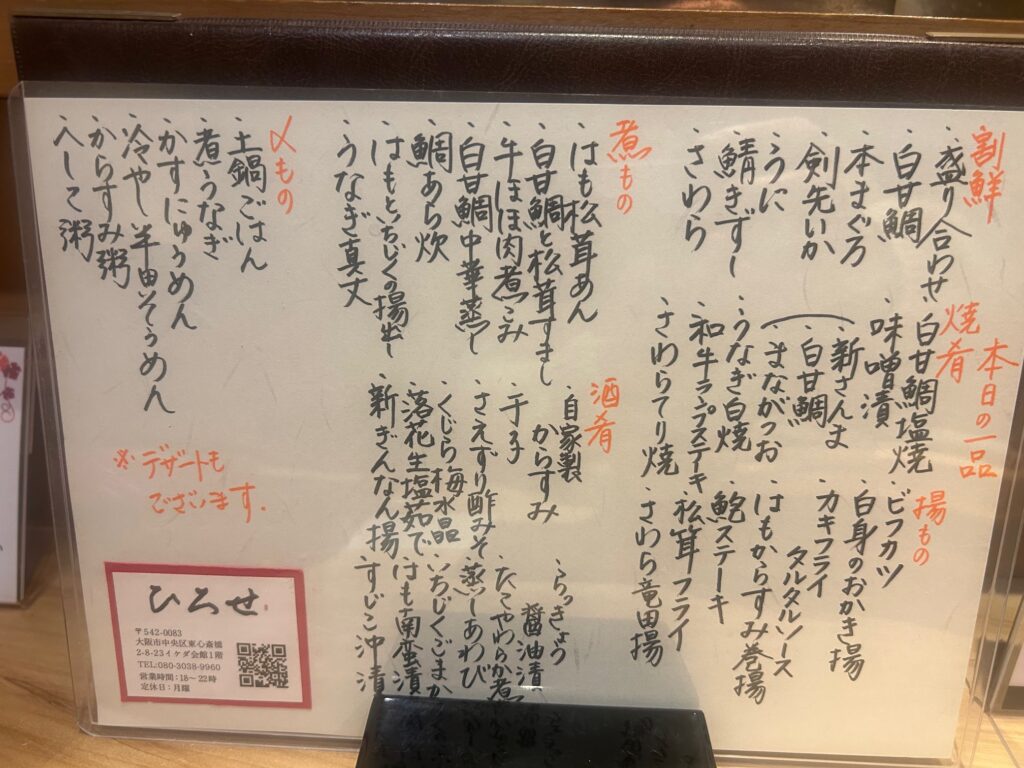 本日の一品
割鮮
・盛り合わせ
・白甘鯛
・本まぐろ
・剣先いか
・うに
・鯖きずし
・さわら
焼肴
・白甘鯛塩焼
味噌漬
・新さんま
・白甘鯛
・まながつお
・うなぎ白焼
・和牛ランプステーキ
・さわらてり焼
揚もの
・ビフカツ
・白身のおかき揚
・カキフライ
タルタルソース
・はもからすみ巻揚
・鮑ステーキ
・松茸フライ
・さわら竜田揚
煮もの
・はも松茸あん
・白甘鯛と松茸すきし
・牛ほほ肉煮こみ
・白甘鯛中華蒸し
・鯛あら炊
・はもといちじくの揚出し
・うなぎ真丈
酒肴
・自家製
からすみ
・干子
・さえずり酢みそ
・くじら梅水晶
・落花生塩茹で
・新ぎんなん揚
・らっきょう
醤油漬
・たこやわらか煮
・蒸しあわび
・いちじくごま
・はも南蛮漬
・すじこ沖漬
〆もの
・土鍋ごはん
・煮うなぎ
・かすにゅうめん
・冷やし半田そうめん
・からすみ粥
・へしこ粥
※デザートも
ございます.
ひろせ
〒542-0083
大阪市中央区東心斎橋
2-8-23イケダ会館1階
TEL:080-3038-9960
営業時間:18〜22時
定休日:月曜